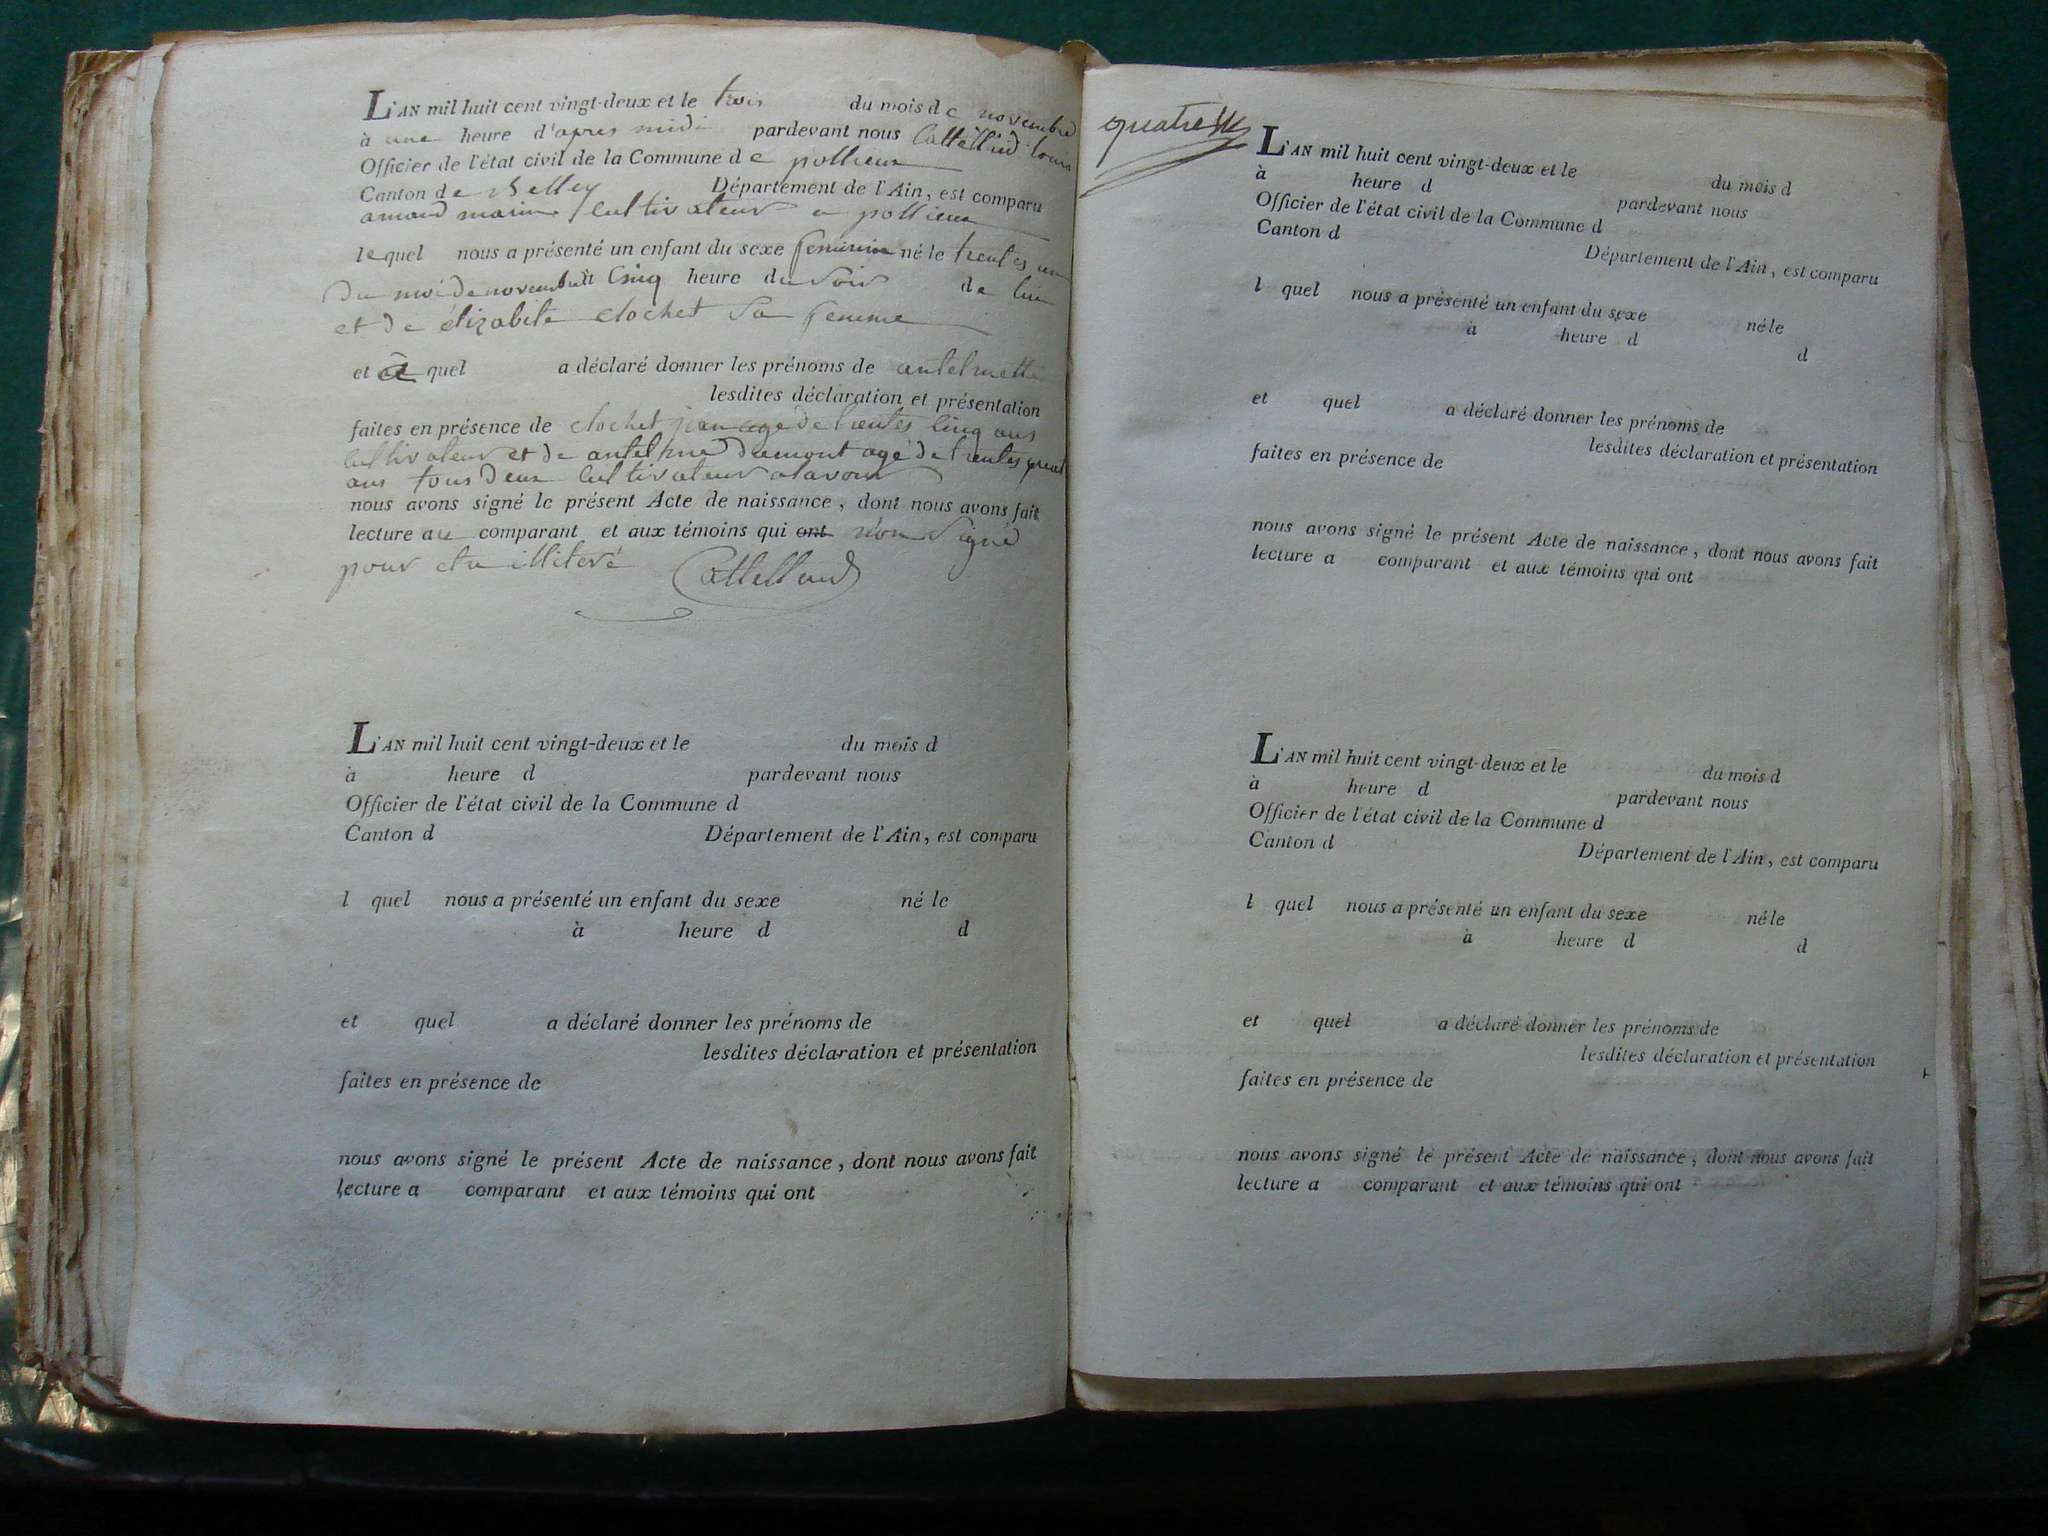 L'AN mil huit cent vingt-deux et le trois du mois de novembre
à une heure d'apres midi pardevant nous Cattellind Louis
Officier de l'état civil de la Commune de pollieux
Canton de Belley Département de l'Ain, est comparu
amand marin cultivateur a pollieux
lequel nous a présenté un enfant du sexe feminin né le trentes un
du moi de novembre à Cinq heure du Soir de lui
et de élizabite clochet Sa femme
et quel a déclaré donner les prénoms de antelmette
lesdites déclaration et présentation
faites en présence de clochet jean agé de trentes cinq ans
cultivateur et de antelme Dumont agé de trentes quatre
ans tous deux cultivateur alavour
nous avons signé le présent Acte de naissance, dont nous avons fait
lecture au comparant et aux témoins qui ont n'on Signé
pour etre illiteré
quatre
L'AN mil huit cent vingt-deux et le du mois d
à heure d pardevant nous
Officier de l'état civil de la Commune d
Canton d Département de l'Ain, est comparu
l quel nous a présenté un enfant du sexe né le
à heure d d
et quel a déclaré donner les prénoms de
lesdites déclaration et présentation
faites en présence de
nous avons signé le présent Acte de naissance, dont nous avons fait
lecture a comparant et aux témoins qui ont
L'AN mil huit cent vingt-deux et le du mois d
à heure d pardevant nous
Officier de l'état civil de la Commune d
Canton d Département de l'Ain, est comparu
l quel nous a présenté un enfant du sexe né le
à heure d d
et quel a déclaré donner les prénoms de
lesdites déclaration et présentation
faites en présence de
nous avons signé le présent Acte de naissance, dont nous avons fait
lecture a comparant et aux témoins qui ont
L'AN mil huit cent vingt-deux et le du mois d
à heure d pardevant nous
Officier de l'état civil de la Commune d
Canton d Département de l'Ain, est comparu
l quel nous a présenté un enfant du sexe né le
à heure d d
et quel a déclaré donner les prénoms de
lesdites déclaration et présentation
faites en présence de
nous avons signé le présent Acte de naissance, dont nous avons fait
lecture a comparant et aux témoins qui ont